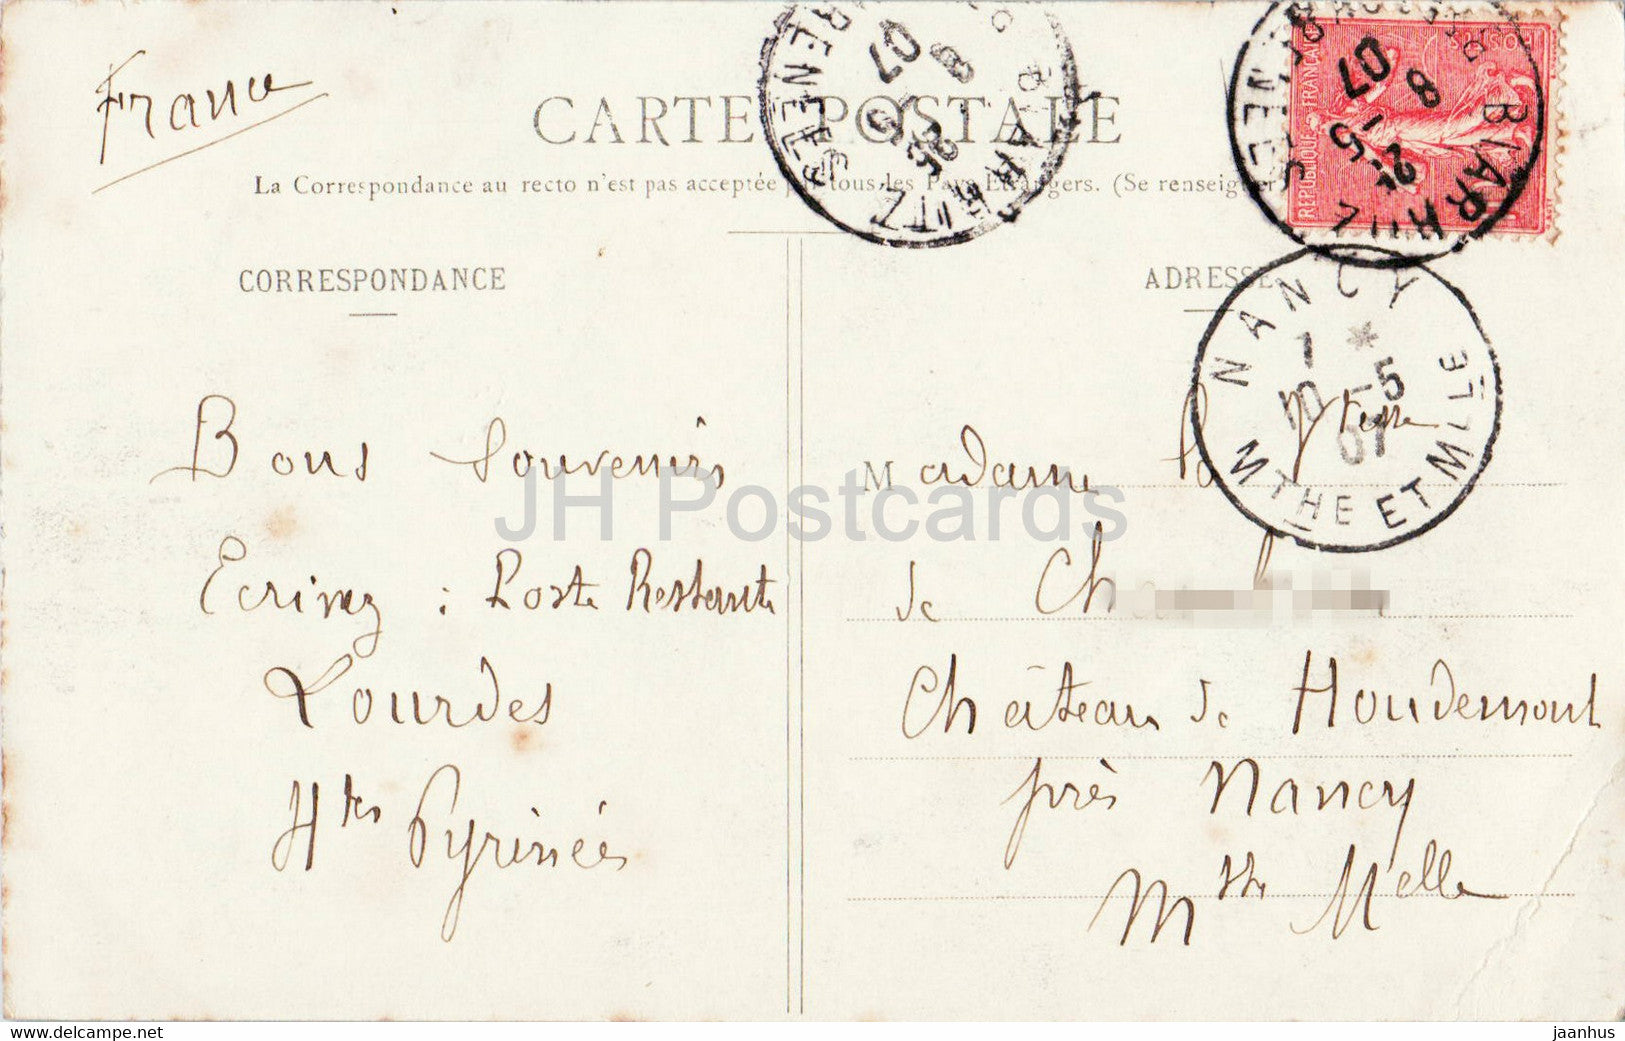 France
CARTE POSTALE
La Correspondance au recto n'est pas acceptée par tous les Pays Étrangers. (Se renseigner
CORRESPONDANCE
Bons Souvenirs
Ecrivez : Poste Restante
Lourdes
Htes Pyrinées
ADRESSE
Madame la Vtesse
de Ch
Château de Houdemont
près Nancy
Mthe Melle
REPUBLIQUE FRANÇAISE
POSTES
BIARRITZ
2-5
8 -5
07
BIARRITZ
8 -5
07
NANCY
1 *
10 -5
07
MTHE ET MLLE
JH Postcards
www.delcampe.net
jaanhus